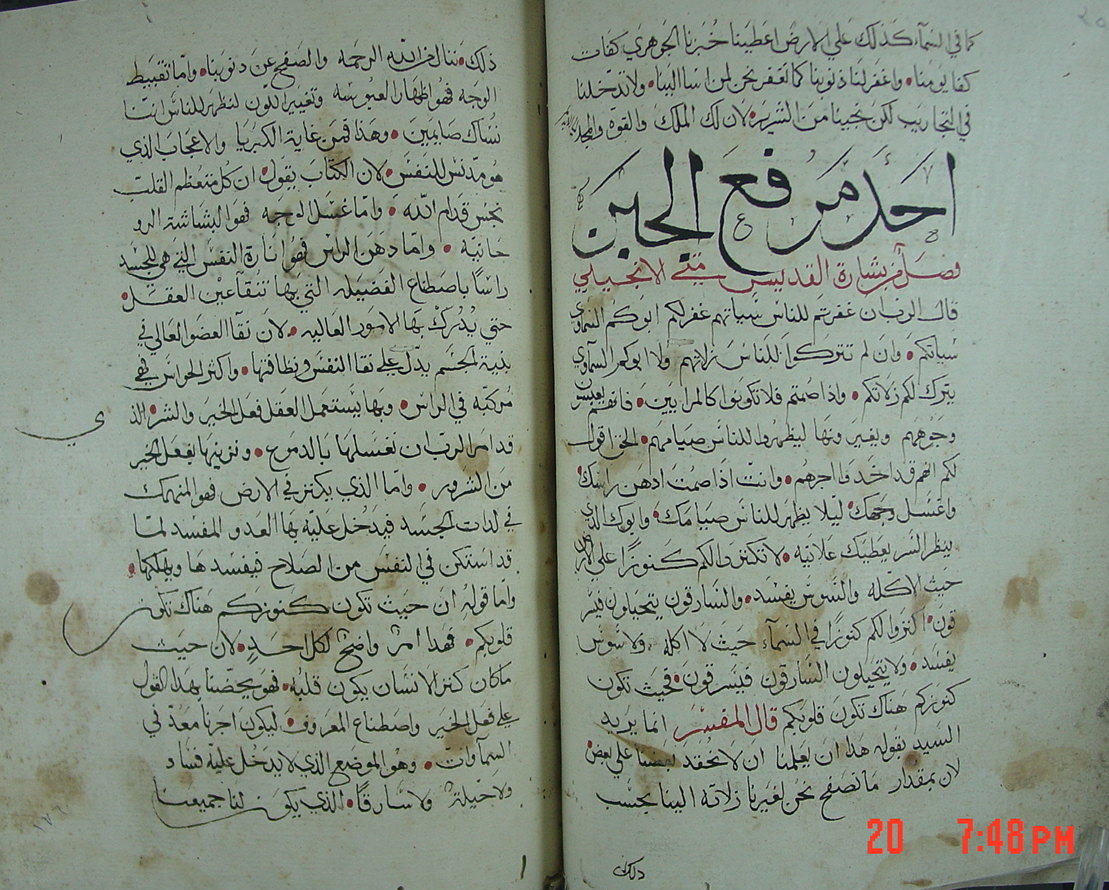 كما في السماء كذلك علي الارض اعطينا خبزنا الجوهري كفات
كفا يومنا • واغفر لنا ذنوبنا كما نغفر نحن لمن اسا الينا • ولا تدخلنا
في التجاريب لكن نجينا من الشرير • لان لك الملك والقوه والمجد
احد مرفع الجبن
فصل من بشارة القديس متي الانجيلي
قال الرب ان غفرتم للناس سياتهم غفر لكم ابوكم السماوي
سياتكم • وان لم تتركوا للناس زلاتهم ولا ابوكم السماوي
يترك لكم زلاتكم • واذا صمتم فلا تكونوا كالمرايين • فانهم يعبسن
وجوههم ويغيرونها ليظهروا للناس صيامهم • الحق اقول
لكم انهم قد اخدوا اجرهم • وانت اذا صمت ادهن راسك
واغسل وجهك • ليلا يظهر للناس صيامك • وابوك الذي
ينظر السر يعطيك علانيه • لا تكنزوا لكم كنوزا علي الارض
حيث الاكله والسوس يفسد • والسارقون يتحيلون فيسر
قون • اكنزوا لكم كنوزا في السماء حيث لا اكله ولا سوس
يفسد • ولا يتحيلون السارقون فيسرقون • فحيث تكون
كنوزكم هناك تكون قلوبكم قال المفسر انما يريد
السيد بقوله هذا ان يعلمنا ان لا نحقد بعضنا علي بعض
لان بمقدار ما نصفح نحن لغيرنا زلاته الينا بحسب
ذلك
ذلك • ننال من الله الرحمه والصفح عن دنوبنا • واما تقبيط
الوجه فهو اظهار العبوسه وتغيير اللون لنظهر للناس اننا
نساك صايبين • وهذا فمن غاية الكبريا والاعجاب الذي
هو مدنس للنفس • لان الكتاب يقول ان كل متعظم القلب
نجس قدام الله • واما غسل الوجه فهو البشاشه الرو
حانيه • واما دهن الراس فهو انارة النفس التي هي للجسد
راسا باصطناع الفضيله التي بها تنقا عين العقل •
حتي يدرك بها الامور العاليه • لان نقا العضو العالي في
بنية الجسم يدل علي نقا النفس ونظافتها • واكثر الحواس فهي
مركبه في الراس • وبها يستعمل العقل فعل الخير والشر • الذ
ي
قد امر الرب ان نغسلها بالدموع • ونزينها بفعل الخير
من الشرور • واما الذي يكنز في الارض فهو المنهمك
في لدات الجسد فيدخل عليه بها العدو المفسد لما
قد استكن في النفس من الصلاح فيفسدها ويهلكها •
واما قوله ان حيث تكون كنوزكم هناك تكون
قلوبكم • فهدا امر واضح لكل احد • لان حيث
ما كان كنز الانسان يكون قلبه • فهو يحضنا بهدا القول
علي فعل الخير واصطناع المعروف • ليكون اجرنا معد في
السماوات • وهو الموضع الذي لا يدخل عليه فسا و
ولا حيلة ولا سارقا • الذي يكون لنا جميعنا
20 7:48 PM